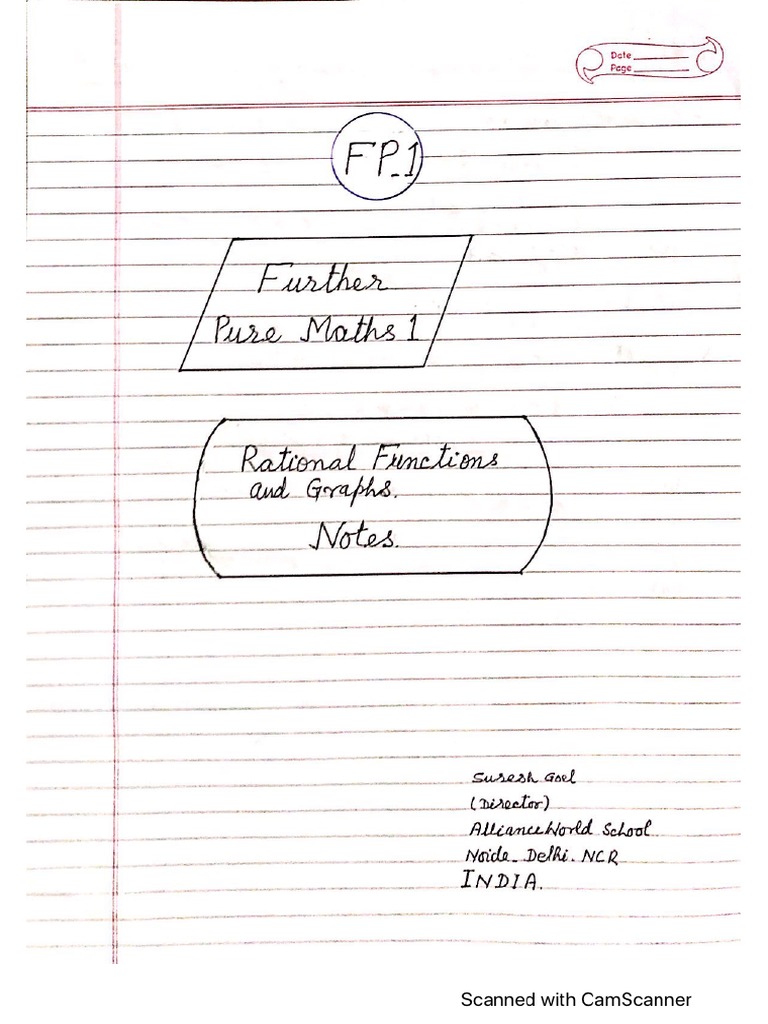 Date
Page
FP-1
Further
Pure Maths 1
Rational Functions
and Graphs.
Notes.
Suresh Goel
(Director)
Alliance World School
Noida - Delhi. NCR
INDIA.
Scanned with CamScanner